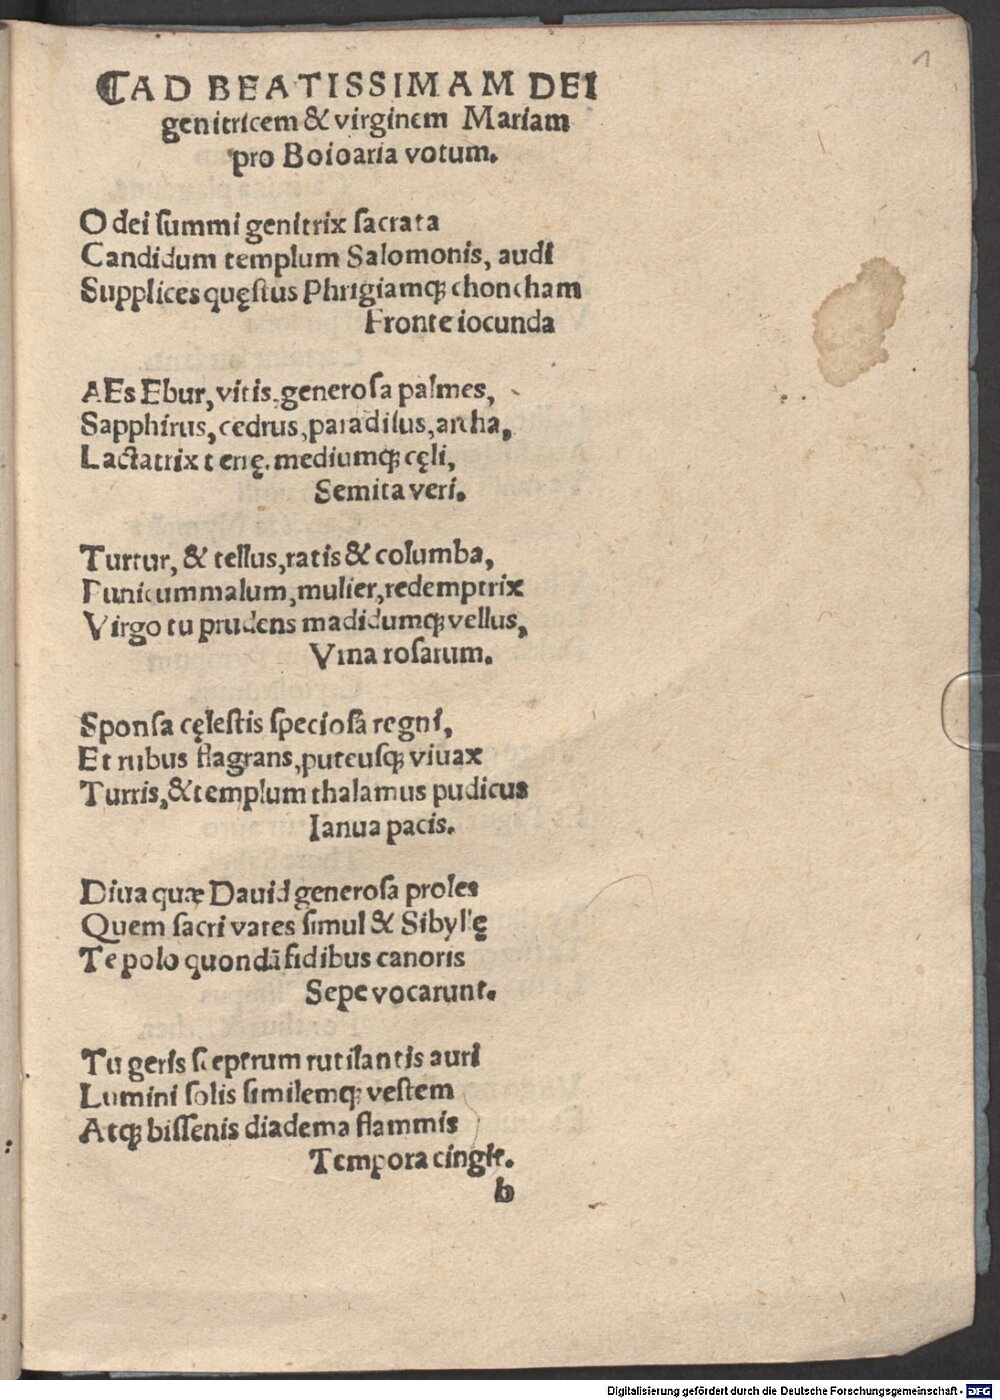 1
⁋AD BEATISSIMAM DEI
genitricem & virginem Mariam
pro Boioaria votum.
O dei ſummi genitrix ſacrata
Candidum templum Salomonis, audi
Supplices quęſtus Phrigiamqꝫ choncham
Fronte iocunda
AEs Ebur, vitis, generoſa palmes,
Sapphirus, cedrus, paradiſus, archa,
Lactatrix terrę, mediumqꝫ cęli,
Semita veri.
Turtur, & tellus, ratis & columba,
Punicum malum, mulier, redemptrix
Virgo tu prudens madidumqꝫ vellus,
Vina roſarum.
Sponſa cęleſtis ſpecioſa regni,
Et rubus flagrans, puteuſqꝫ viuax
Turris, & templum thalamus pudicus
Ianua pacis.
Diua quæ Dauid generoſa proles
Quem ſacri vates ſimul & Sibyllę
Te polo quondā fidibus canoris
Sepe vocarunt.
Tu geris sceptrum rutilantis auri
Lumini ſolis ſimilemqꝫ veſtem
Atqꝫ biſſenis diadema flammis
Tempora cingit.
b
Digitalisierung gefördert durch die Deutsche Forschungsgemeinschaft - DFG